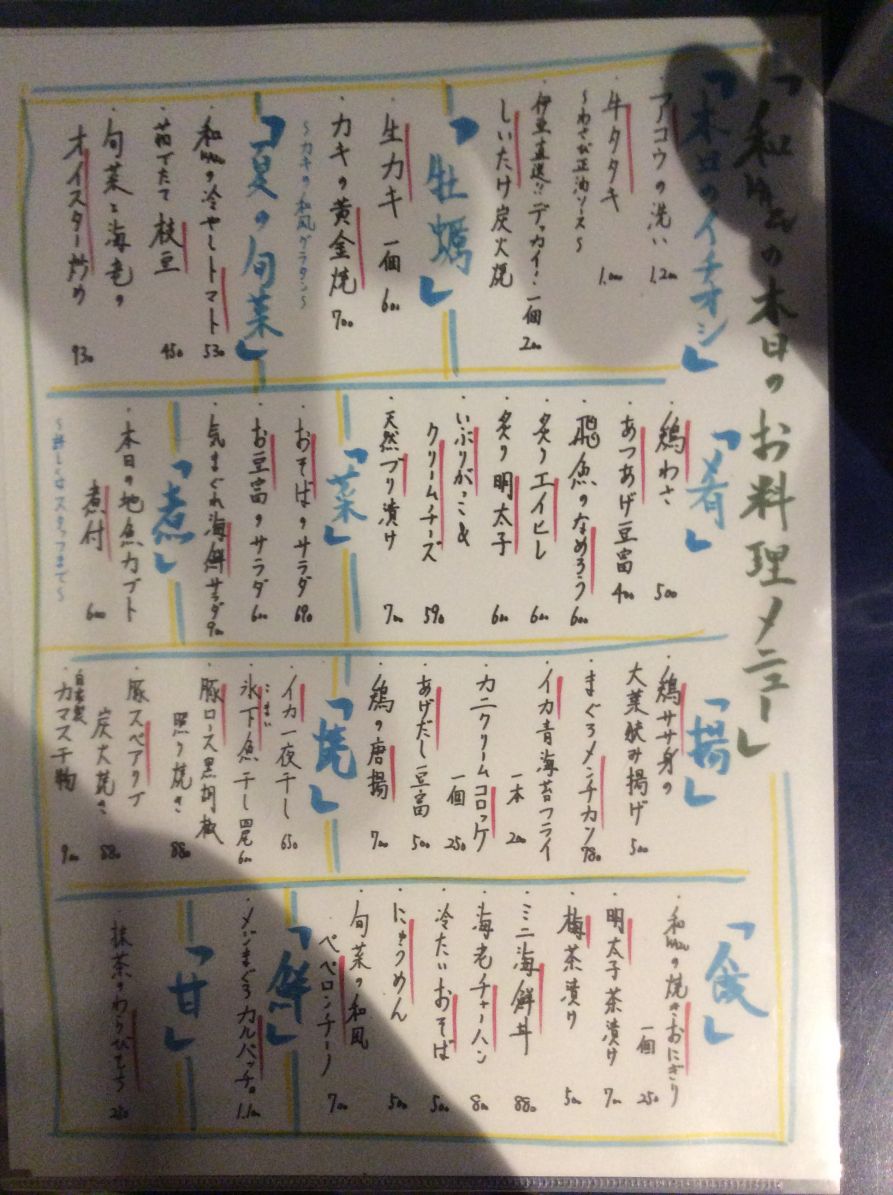 「和
の本日のお料理メニュー」
「本日のイチオシ」
・アコウの洗い 1.200
・牛タタキ 1.000
〜わさび正油ソース〜
伊豆直送!!デッカイ!一個 200
・しいたけ炭火焼
「牡蠣」
・生カキ 一個 600
・カキの黄金焼 700
〜カキの和風グラタン〜
「夏の旬菜」
・和
の冷やしトマト 530
・茹でたて枝豆 450
・旬菜と海老の
オイスター炒め 930
「肴」
・鶏わさ 500
・あつあげ豆富 400
・飛魚のなめろう 600
・炙りエイヒレ 600
・炙り明太子 600
・いぶりがっこ&
クリームチーズ 590
・天然ブリ漬け 700
「菜」
・おそばのサラダ 690
・お豆富のサラダ 600
・気まぐれ海鮮サラダ 900
「煮」
・本日の地魚カブト
煮付 600
〜詳しくはスタッフまで〜
「揚」
・鶏ササ身の
大葉挟み揚げ 500
・まぐろメンチカツ 780
・イカ青海苔フライ
一本 200
・カニクリームコロッケ
一個 250
・あげだし豆富 500
・鶏の唐揚 700
「焼」
・イカ一夜干し 650
こまい
・氷下魚干し 四尾 600
・豚ロース黒胡椒
照り焼き 880
・豚スペアリブ
炭火焼き 880
・自家製
カマス干物 900
「飯」
・和
の焼きおにぎり
一個 250
・明太子茶漬け 700
・梅茶漬け 500
・ミニ海鮮丼 880
・海老チャーハン 800
・冷たいおそば 500
・にゅうめん 500
・旬菜の和風
ペペロンチーノ 700
「鮮」
・メジまぐろカルパッチョ 1.100
「甘」
・抹茶のわらびもち 250